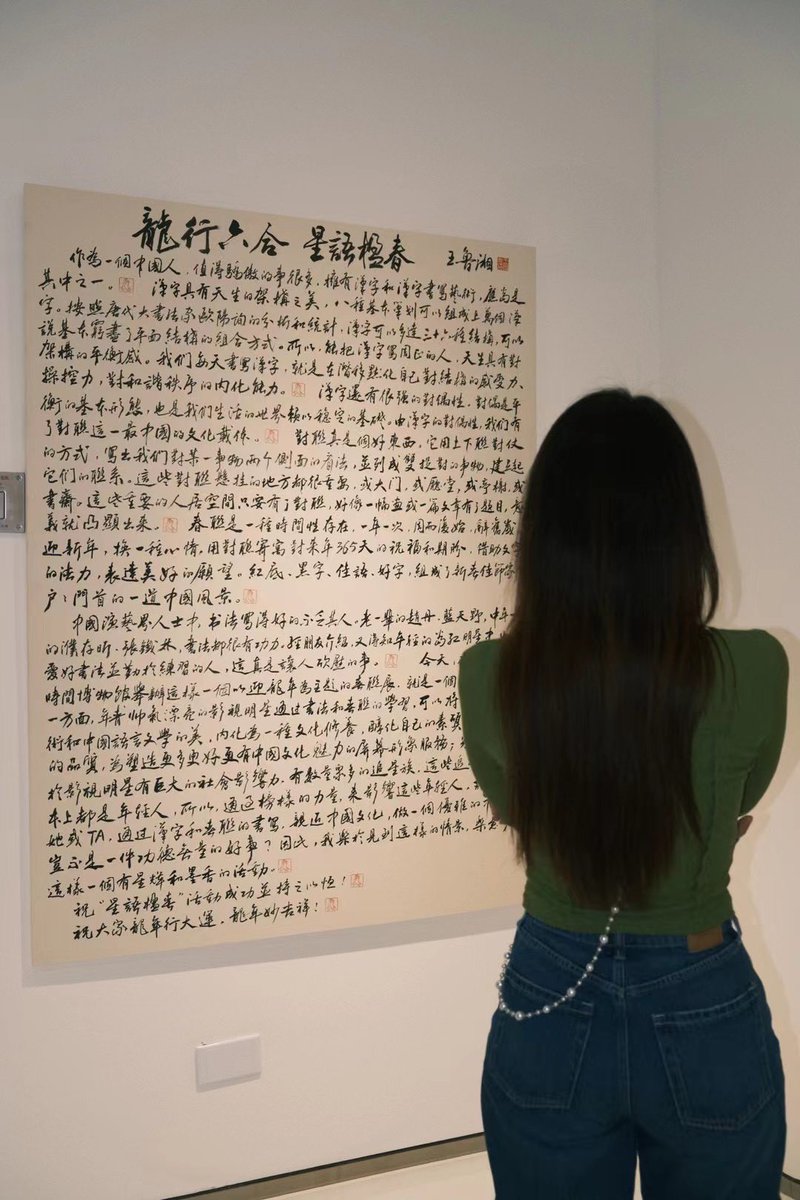 龍行六合 星語楹春 王魯湘
作為一個中國人，值得驕傲的事很多，擁有漢字和漢字書寫藝術，應當是
其中之一。 漢字具有天生的架構之美，八種基本筆划可以組成上萬個漢
字。按照唐代大書法家歐陽詢的分析和統計，漢字可以多達三十六種結構，可以
說基本窮盡了平面結構的組合方式。所以，能把漢字寫周正的人，天生具有對
架構的平衡感。我們每天書寫漢字，就是在潛移默化自己對結構的感受力、
操控力，對和諧秩序的內化能力。 漢字還有很強的對偶性，對偶是平
衡的基本形態，也是我們生活的世界賴以穩定的基礎。由漢字的對偶性，我們有
了對聯這一最中國的文化載體。 對聯真是個好東西，它用上下聯對仗
的方式，寫出我們對某一事物兩個側面的看法，並列或雙提對的事物，建立起
它們的聯系。這些對聯懸挂的地方都很重要，或大門，或廳堂，或亭榭，或
書齋。這些重要的人居空間只要有了對聯，好像一幅畫或一篇文章有了題目，
義就凸顯出來。 春聯是一種時間性存在，一年一次，周而復始，辭舊歲
迎新年，換一種心情，用對聯寄寓對來年365天的祝福和期盼，借助文字
的法力，表達美好的願望。紅底、黑字、佳語、好字，組成了新春佳節家
户户門首的一道中國風景。
中國演藝界人士中，書法寫得好的不乏其人。老一輩的趙丹、藍天野，中年一
的濮存昕、張鐵林，書法都很有功力。經朋友介紹，又得知年輕的為紅明星中
愛好書法並勤於練習的人，這真是讓人欣慰的事。 今天，
時間博物館舉辦這樣一個以迎龍年為主題的春聯展，就是一個
一方面，年青帅氣漂亮的影視明星通過書法和春聯的學習，可以將
術和中國語言文學的美，內化為一種文化修養，醇化自己的素質
的品質，為塑造更多更好更有中國文化魅力的屏幕形象服務；
於影視明星有巨大的社會影響力，有數量衆多的追星族，這些追
本上都是年輕人，所以，通過榜樣的力量，來影響這些年輕人，
她或TA，通過漢字和春聯的書寫，親近中國文化，做一個優雅的
豈不是一件功德無量的好事？因此，我樂於見到這樣的情景，樂
這樣一個有星輝和墨香的活動。
祝“星語楹春”活動成功並持之以恒！
祝大家龍年行大運，龍年妙吉祥！